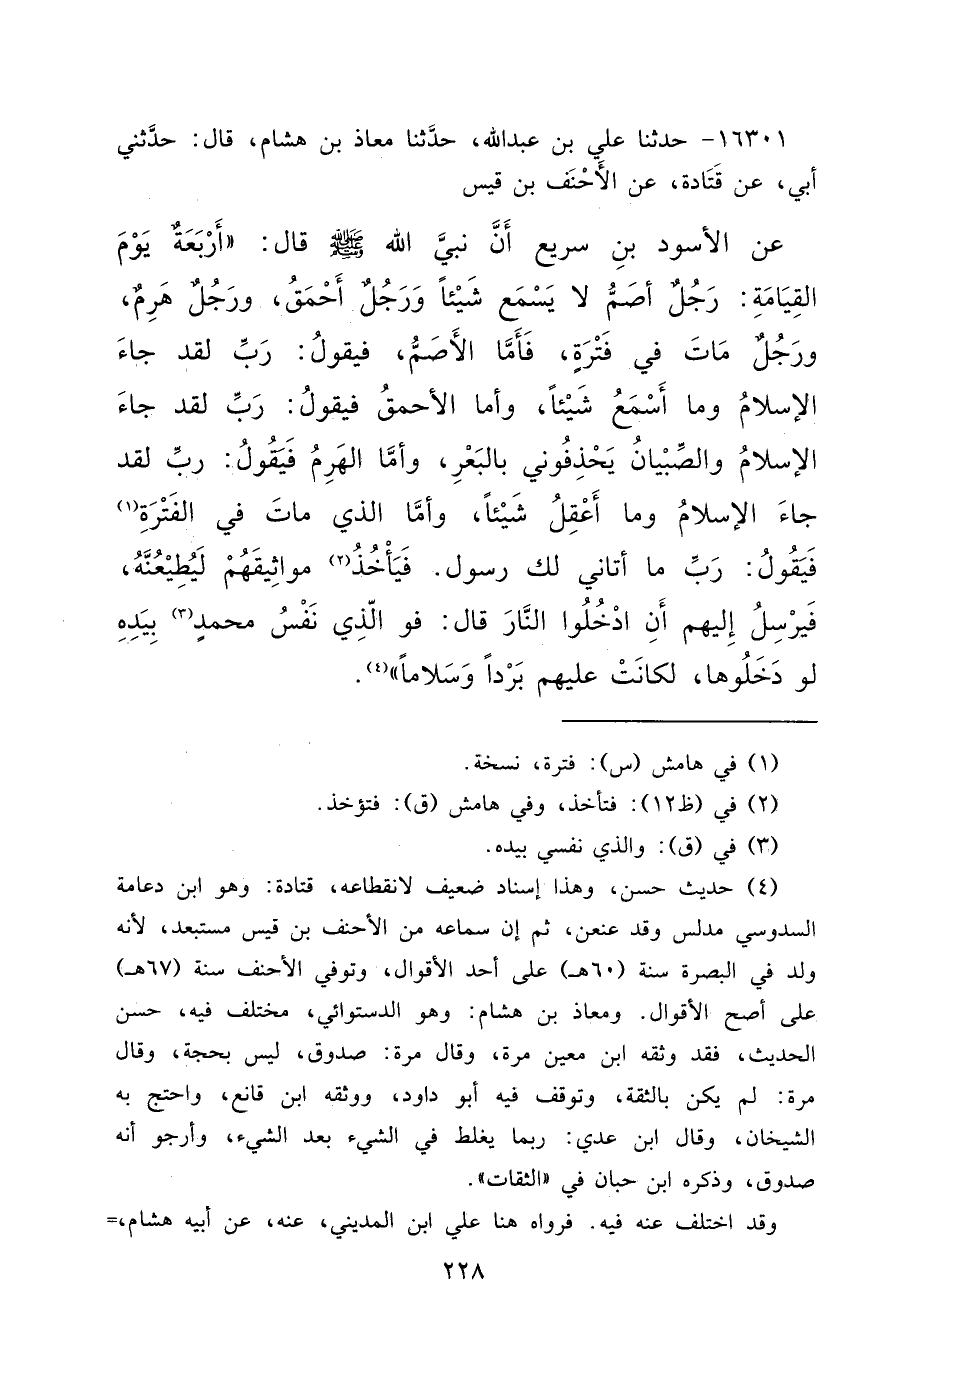 ١٦٣٠١- حدثنا علي بن عبدالله، حدَّثنا معاذ بن هشام، قال: حدَّثني
أبي، عن قَتَادة، عن الأَحْنَف بن قيس
عن الأسود بنِ سريع أَنَّ نبيَّ الله ﷺ قال: «أَرْبَعَةٌ يَوْمَ
القِيَامَةِ: رَجُلٌ أصَمُّ لا يَسْمَع شَيْئاً وَرَجُلٌ أَحْمَقُ، ورَجُلٌ هَرِمٌ،
ورَجُلٌ مَاتَ في فَتْرَةٍ، فَأَمَّا الأَصَمُّ، فيقولُ: رَبِّ لقد جاءَ
الإسلامُ وما أَسْمَعُ شَيْئاً، وأما الأحمقُ فيقولُ: رَبِّ لقد جاءَ
الإسلامُ والصِّبْيانُ يَحْذِفُوني بالبَعْرِ، وأمَّا الهَرِمُ فَيَقُولُ: ربِّ لقد
جاءَ الإسلامُ وما أَعْقِلُ شَيْئاً، وأمَّا الذي ماتَ في الفَتْرَةِ(١)
فَيَقُولُ: رَبِّ ما أتاني لك رسول. فَيَأْخُذُ(٢) مواثِيقَهُمْ لَيُطِيْعُنَّهُ،
فَيرْسِلُ إِليهم أَنِ ادْخُلُوا النَّارَ قال: فو الّذِي نَفْسُ محمدٍ(٣) بِيَدِهِ
لو دَخَلُوها، لكانَتْ عليهم بَرْداً وَسَلاماً»(٤).
(١) في هامش (س): فترة، نسخة.
(٢) في (ظ١٢): فتأخذ، وفي هامش (ق): فتؤخذ.
(٣) في (ق): والذي نفسي بيده.
(٤) حديث حسن، وهذا إسناد ضعيف لانقطاعه، قتادة: وهو ابن دعامة
السدوسي مدلس وقد عنعن، ثم إن سماعه من الأحنف بن قيس مستبعد، لأنه
ولد في البصرة سنة (٦٠هـ) على أحد الأقوال، وتوفي الأحنف سنة (٦٧هـ)
على أصح الأقوال. ومعاذ بن هشام: وهو الدستوائي، مختلف فيه، حسن
الحديث، فقد وثقه ابن معين مرة، وقال مرة: صدوق، ليس بحجة، وقال
مرة: لم يكن بالثقة، وتوقف فيه أبو داود، ووثقه ابن قانع، واحتج به
الشيخان، وقال ابن عدي: ربما يغلط في الشيء بعد الشيء، وأرجو أنه
صدوق، وذكره ابن حبان في «الثقات».
وقد اختلف عنه فيه. فرواه هنا علي ابن المديني، عنه، عن أبيه هشام،=
٢٢٨